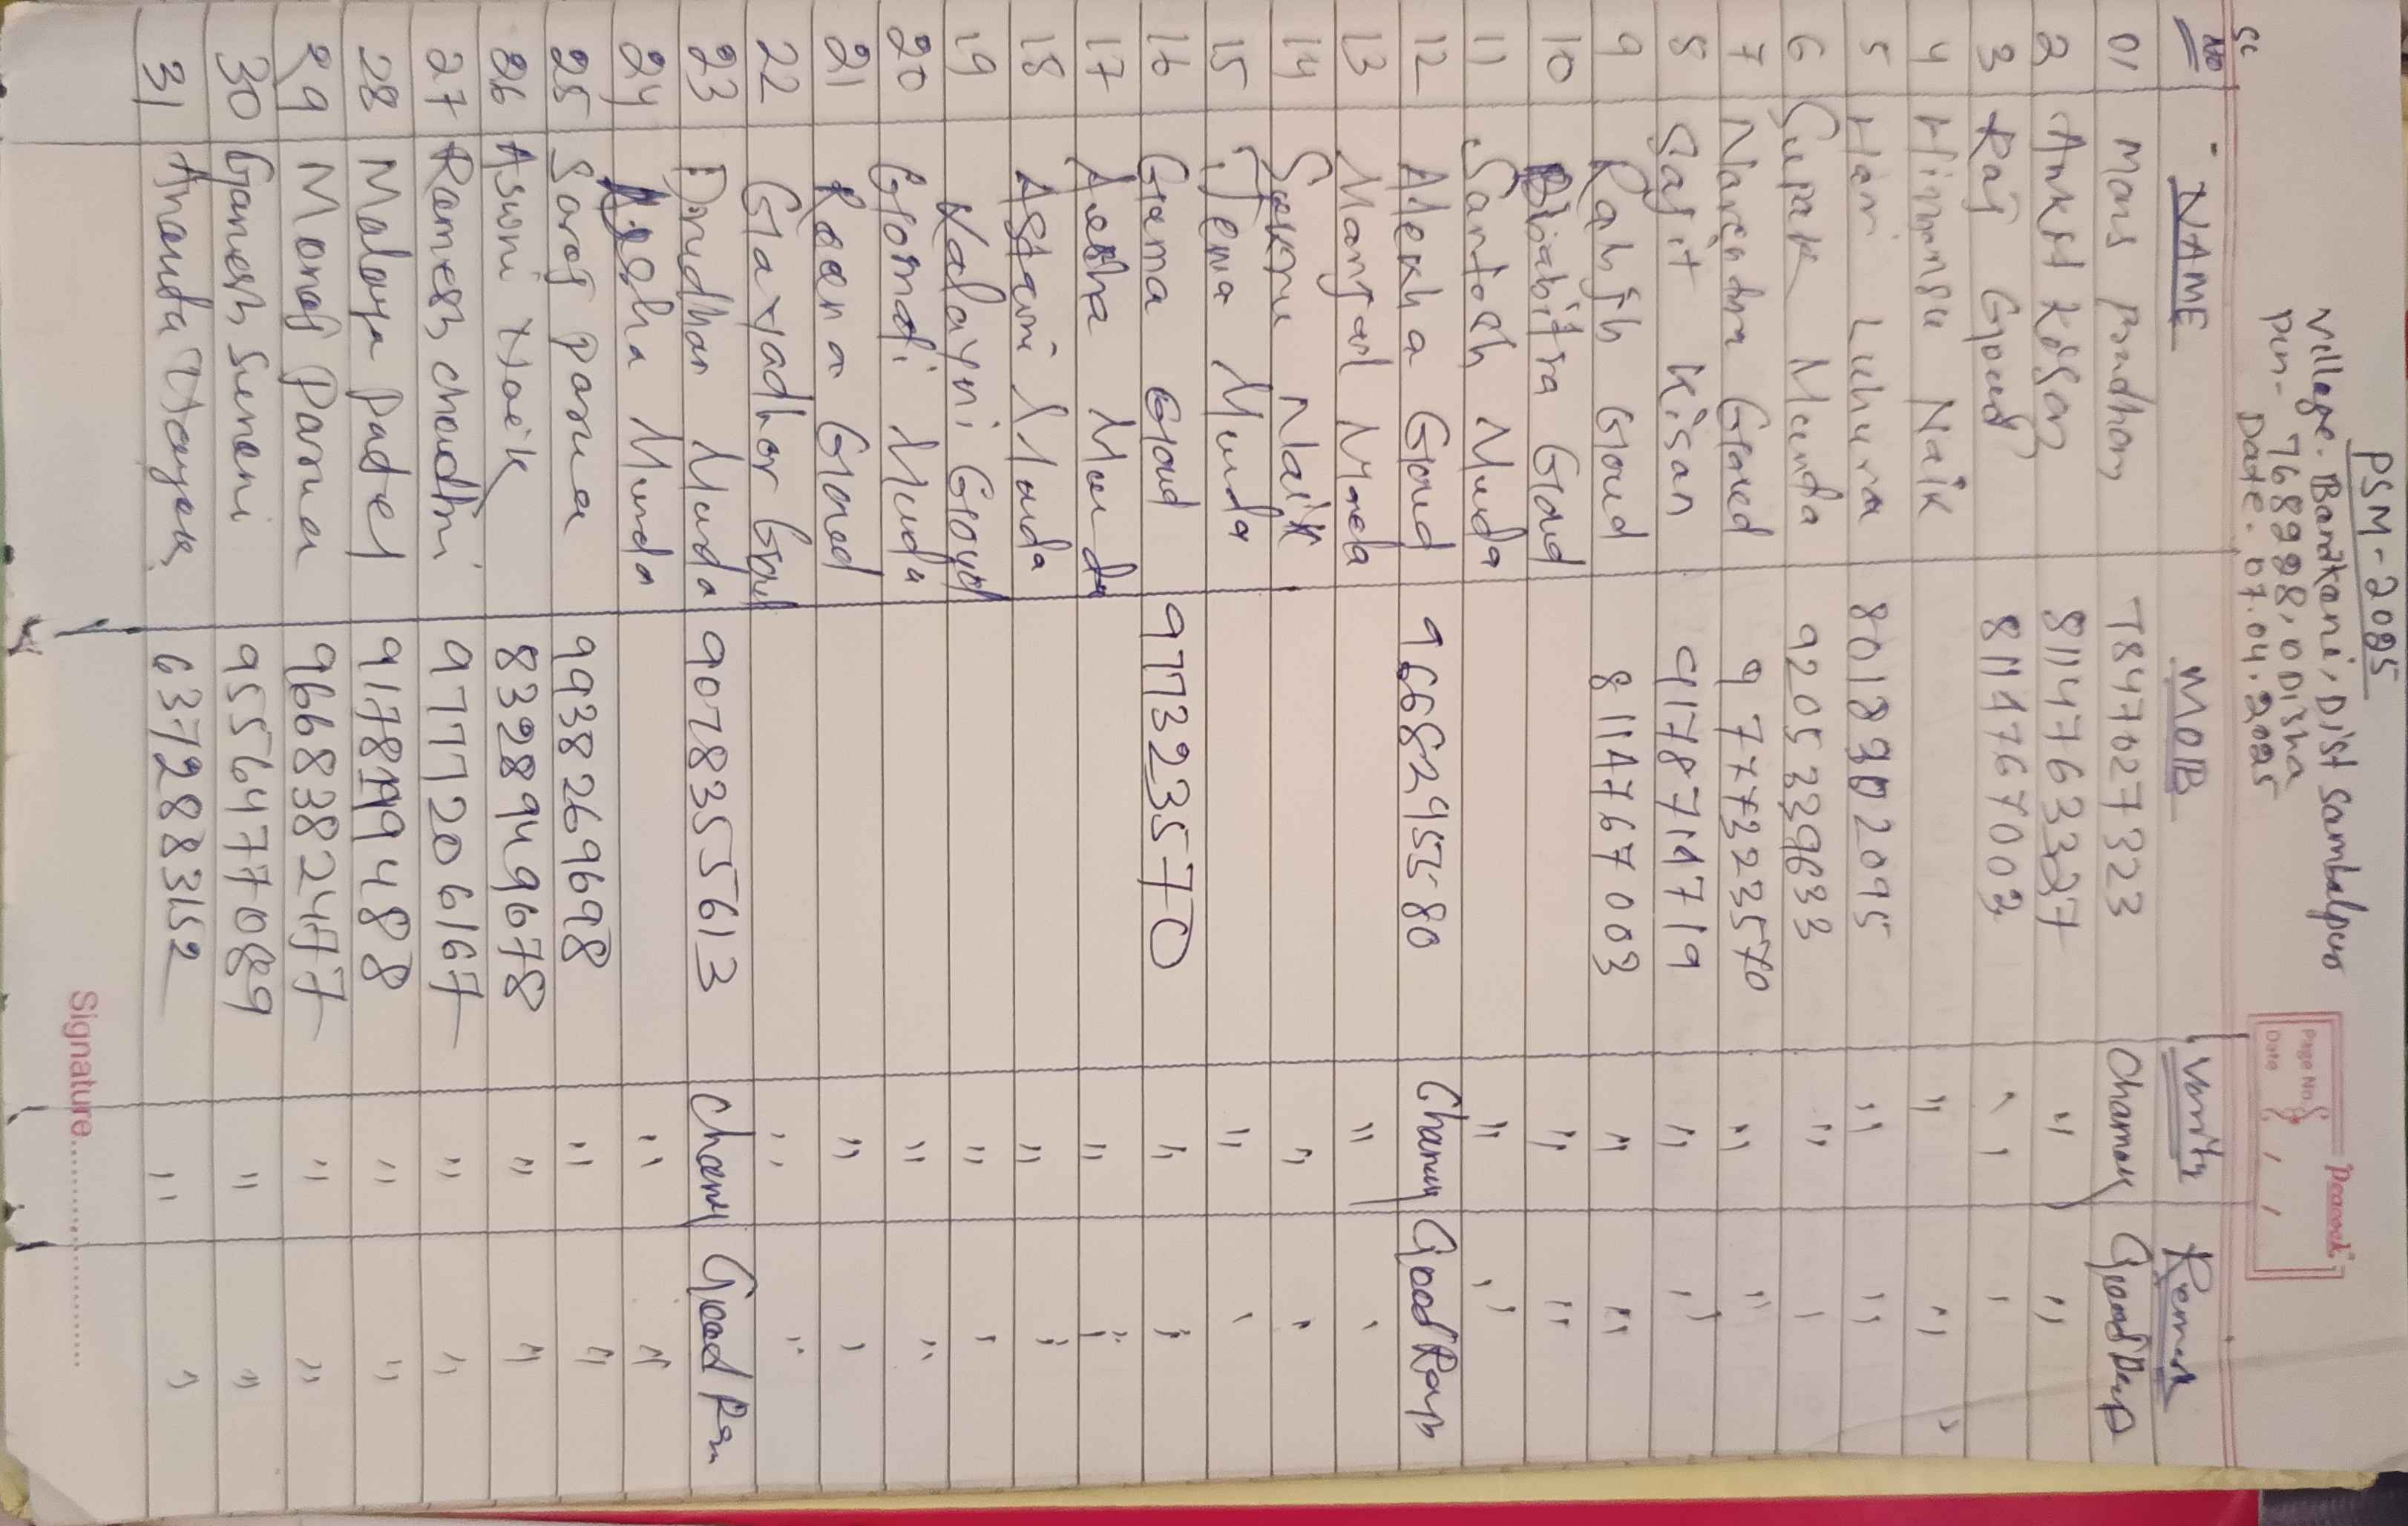 PSM-2025
Village. Bamkani, Dist Sambalpur
Pin- 768228, Odisha
Date. 07.04.2025
Peacock
Page No.
Date / /
SL
No NAME MOB Varity Remark
01 Mans Pradhan 7847027323 Chamak
2 Ankit Kisan 8114763327 " "
3 Raj Goud 8114767003 " "
4 Himansu Naik " "
5 Hari Luhura 8018302095 " "
6 Gupak Munda 9205339633 " "
7 Narendra Goud 9777323570 " "
8 Sagit Kisan 9178714719 " "
9 Ranjih Goud 8114767003 " "
10 Bhabitra Goud " "
11 Santosh Munda " "
12 Alekha Goud 9668295580 Chamak Good
13 Mangal Munda " "
14 Sukru Naik " "
15 Jema Munda " "
16 Gama Goud 977323570 " "
17 Aesha Munda " "
18 Astami Munda " "
19 Kalayni Goud " "
20 Gomati Munda " "
21 Reena Goud " "
22 Gayadhar Goud " "
23 Drudhar Munda 9078355613 Good
24 Aesha Munda " "
25 Saroj Parua 9938269698 " "
26 Aswni Naik 8328949678 " "
27 Ramesh chaudhri 9777206167 " "
28 Malaya Patel 9178199488 " "
29 Monoj Parua 9668382477 " "
30 Ganesh Sunani 9556477089 " "
31 Ananta Nayak 6372883152 " "
Signature....................